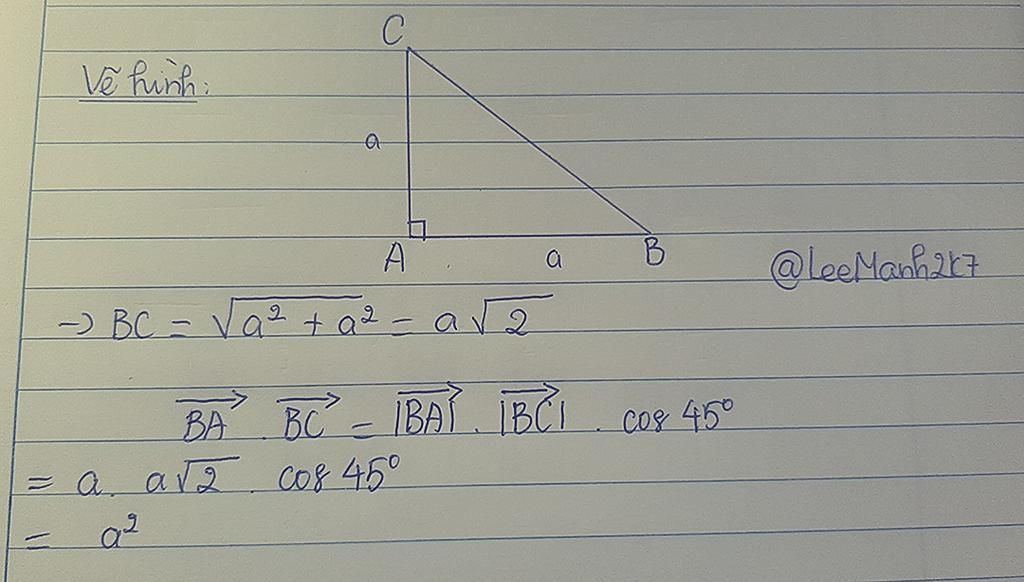 C
Vẽ hình:
a
A a B
@LeeManh2k7
→ BC = √(a² + a²) = a√2
$\overrightarrow{BA}$ . $\overrightarrow{BC}$ = |$\overrightarrow{BA}$| . |$\overrightarrow{BC}$| . cos 45°
= a . a√2 . cos 45°
= a²